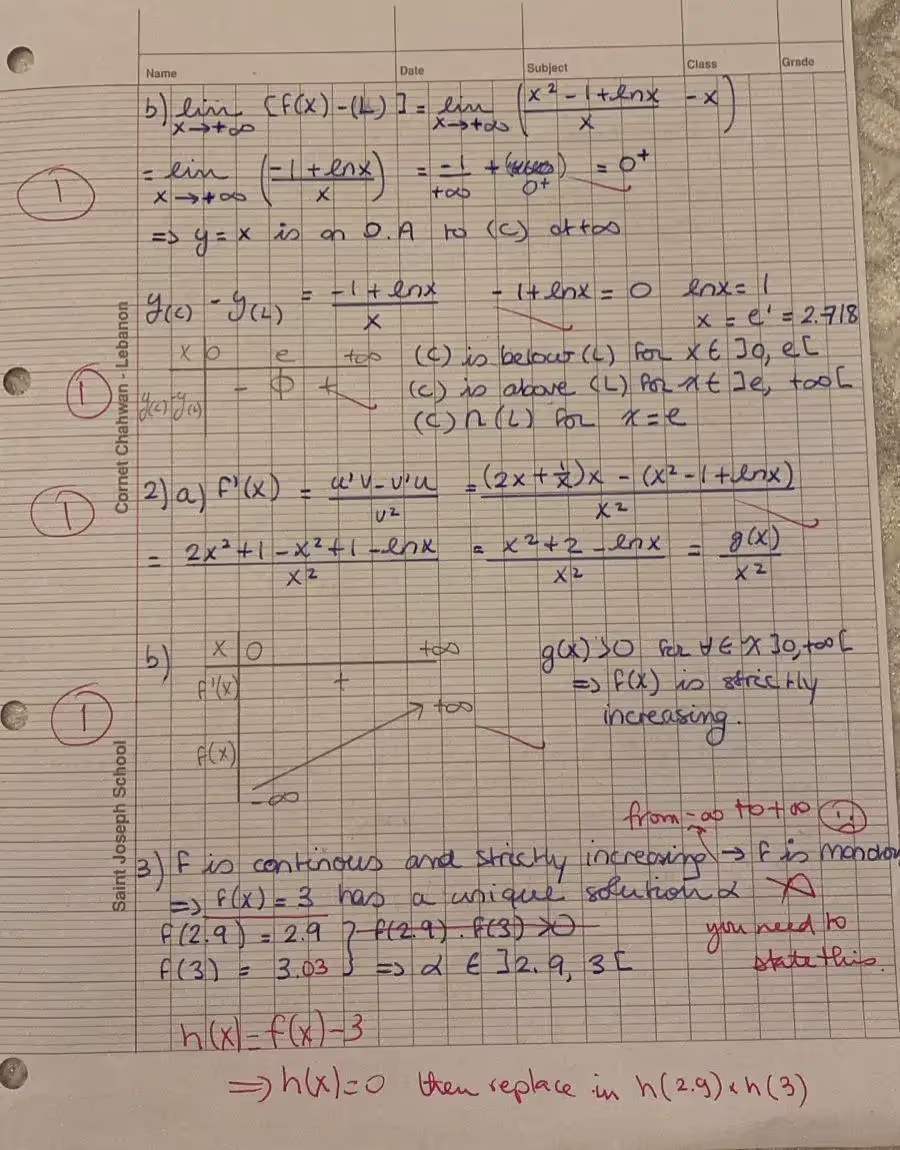 Name Date Subject Class Grade
b) lim x→+∞ [f(x)-(L)] = lim x→+∞ (x² - 1 + lnx / x - x)
= lim x→+∞ (-1 + lnx / x) = -1/+∞ + 0⁺ = 0⁺
1
=> y = x is an O.A to (C) at +∞
y(C) - y(L) = -1 + lnx / x - 1 + lnx = 0 lnx = 1
x = e' = 2.718
x 0 e +∞ (C) is below (L) for x ∈ ]0, e[
1
y(C)-y(L) - 0 + (C) is above (L) for x ∈ ]e, +∞[
(C) ∩ (L) for x = e
Cornet Chahwan - Lebanon
1
2) a) f'(x) = u'v - v'u / v² = (2x + 1/x)x - (x² - 1 + lnx) / x²
= 2x² + 1 - x² + 1 - lnx / x² = x² + 2 - lnx / x² = g(x) / x²
b) x 0 +∞ g(x) > 0 for ∀ ∈ x ]0, +∞[
f'(x) + => f(x) is strictly
1
+∞ increasing.
f(x)
-∞
Saint Joseph School
from -∞ to +∞
3) f is continous and strictly increasing → f is monoton
=> f(x) = 3 has a unique solution α
f(2.9) = 2.9 } f(2.9) . f(3) > 0 you need to
f(3) = 3.03 } => α ∈ ]2.9, 3[ state this.
h(x) = f(x) - 3
=> h(x) = 0 then replace in h(2.9) × h(3)